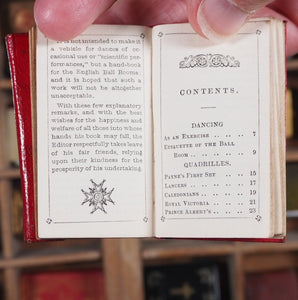 It is not intended to make it
a vehicle for dances of occa-
sional use or "scientific per-
formances," but a hand-book
for the English Ball Room;
and it is hoped that such a
work will not be altogether
unacceptable.
With these few explanatory
remarks, and with the best
wishes for the happiness and
welfare of all those into whose
hands his book may fall, the
Editor respectfully takes leave
of his fair friends, relying
upon their kindness for the
prosperity of his undertaking.
CONTENTS.
DANCING
AS AN EXERCISE .. .. .. 7
ETIQUETTE OF THE BALL
ROOM .. .. .. .. 9
QUADRILLES.
PAYNE'S FIRST SET .. .. 15
LANCERS .. .. .. .. 17
CALEDONIANS .. .. .. 19
ROYAL VICTORIA .. .. 21
PRINCE ALBERT'S .. .. 23